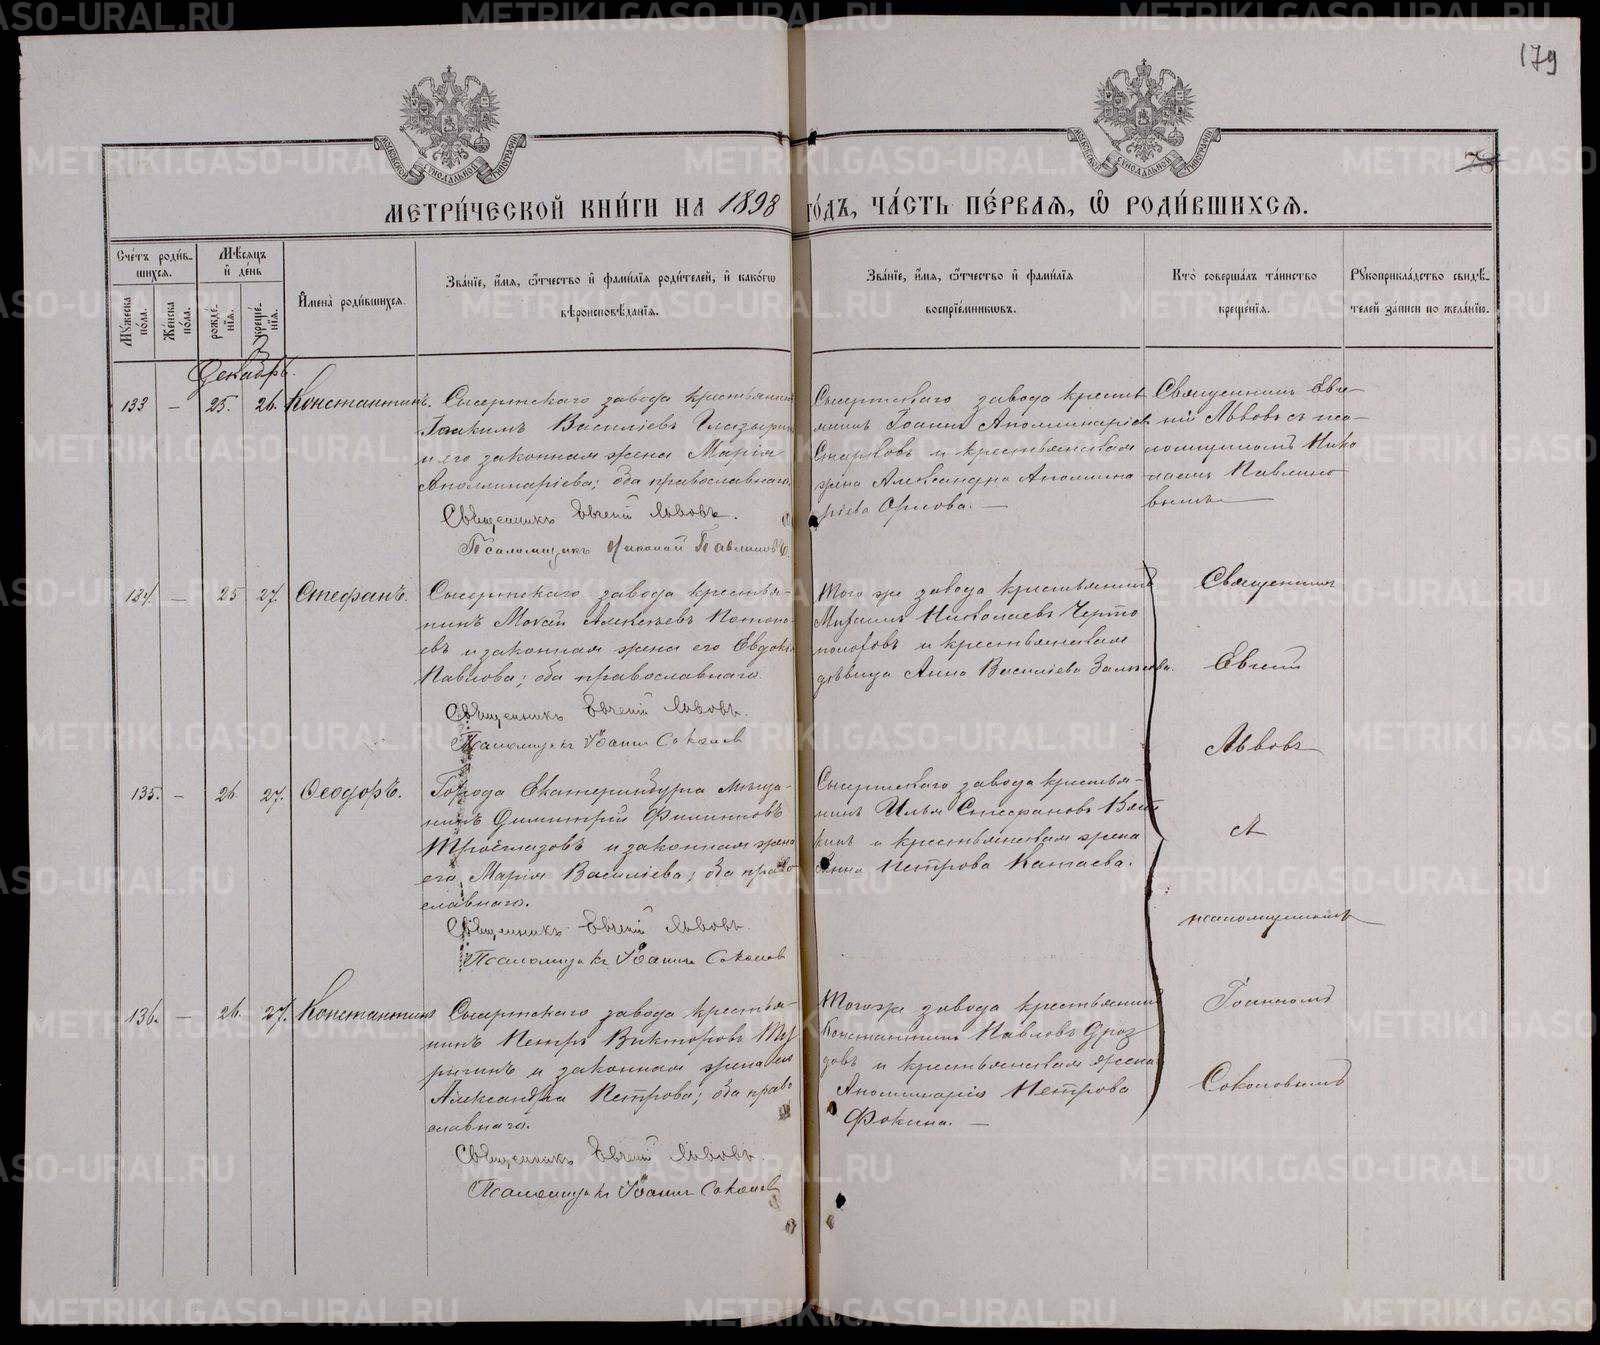 179
78
МЕТРИ́ЧЕСКОЙ КНИ́ГИ НА 1898 ГО́ДЪ, ЧА́СТЬ ПЕ́РВАЯ, Ѿ РОДИ́ВШИХСЯ.
Сче́тъ роди́вшихся.
Мꙋ́жеска по́ла.
Же́нска по́ла.
Мѣ́сяцъ и̑ де́нь
рожде́нїя.
креще́нїя.
И̑мена̀ роди́вшихся.
Зва́нїе, и̑́мя, ѻ҆́тчество и̑ фами́лїя роди́телей, и̑ како́гѡ вѣроисповѣ́данїя.
Зва́нїе, и̑́мя, ѻ҆́тчество и̑ фами́лїя воспрїе́мниковъ.
Кто̀ соверша́лъ та́инство креще́нїя.
Рꙋкоприкла́дство свидѣ́телей за́писи по жела́нїю.
Декабрь.
133 — 25. 26. Константинъ.
Сысертскаго завода крестьянинъ
Іоакимъ Василіевъ Глазырин
и его законная жена Марія
Аполлинаріева; оба православнаго.
Священникъ Евгеній Львовъ.
Псаломщикъ Николай Павлиновъ.
Сысертскаго завода кресть
янинъ Іоаннъ Аполлинаріев
Старковъ и крестьянская
жена Александра Аполлина
ріева Орлова. —
Священникъ Евге-
ній Львовъ съ пса-
ломщикомъ Нико
лаемъ Павлино
вымъ
134. — 25 27. Стефанъ.
Сысертскаго завода крестья-
нинъ Мокей Алексѣевъ Потопо-
въ и законная жена его Евдокія
Павлова; оба православнаго.
Священникъ Евгеній Львовъ.
Псаломщикъ Іоаннъ Соколов
Того же завода крестьянинъ
Николаевъ Черто
и крестьянская
дѣвица Анна Василіева
135. — 26 27. Ѳеодоръ.
Города Екатеринбурга мѣща-
нинъ Димитрій Филипповъ
Троеглазовъ и законная жена
его Марія Василіева; оба право-
славнаго.
Священникъ Евгеній Львовъ.
Псаломщикъ Іоаннъ Соколов
Сысертскаго завода крестья-
нинъ Илья Стефановъ Вят
кинъ и крестьянская жена
Анна Петрова Катаева.
136. — 26. 27. Константинъ
Сысертскаго завода крестья-
нинъ Петръ Викторовъ
и законная жена его
Александра Петрова; оба право
славнаго.
Священникъ Евгеній Львовъ.
Псаломщикъ Іоаннъ Соколов
Того же завода крестьянинъ
Константинъ Павловъ Дроз
довъ и крестьянская жена
Аполлинарія Петрова
Фокина. —
Священникъ
Евгеній
Львовъ
с
псаломщикомъ
Іоанномъ
Соколовымъ
METRIKI.GASO-URAL.RU